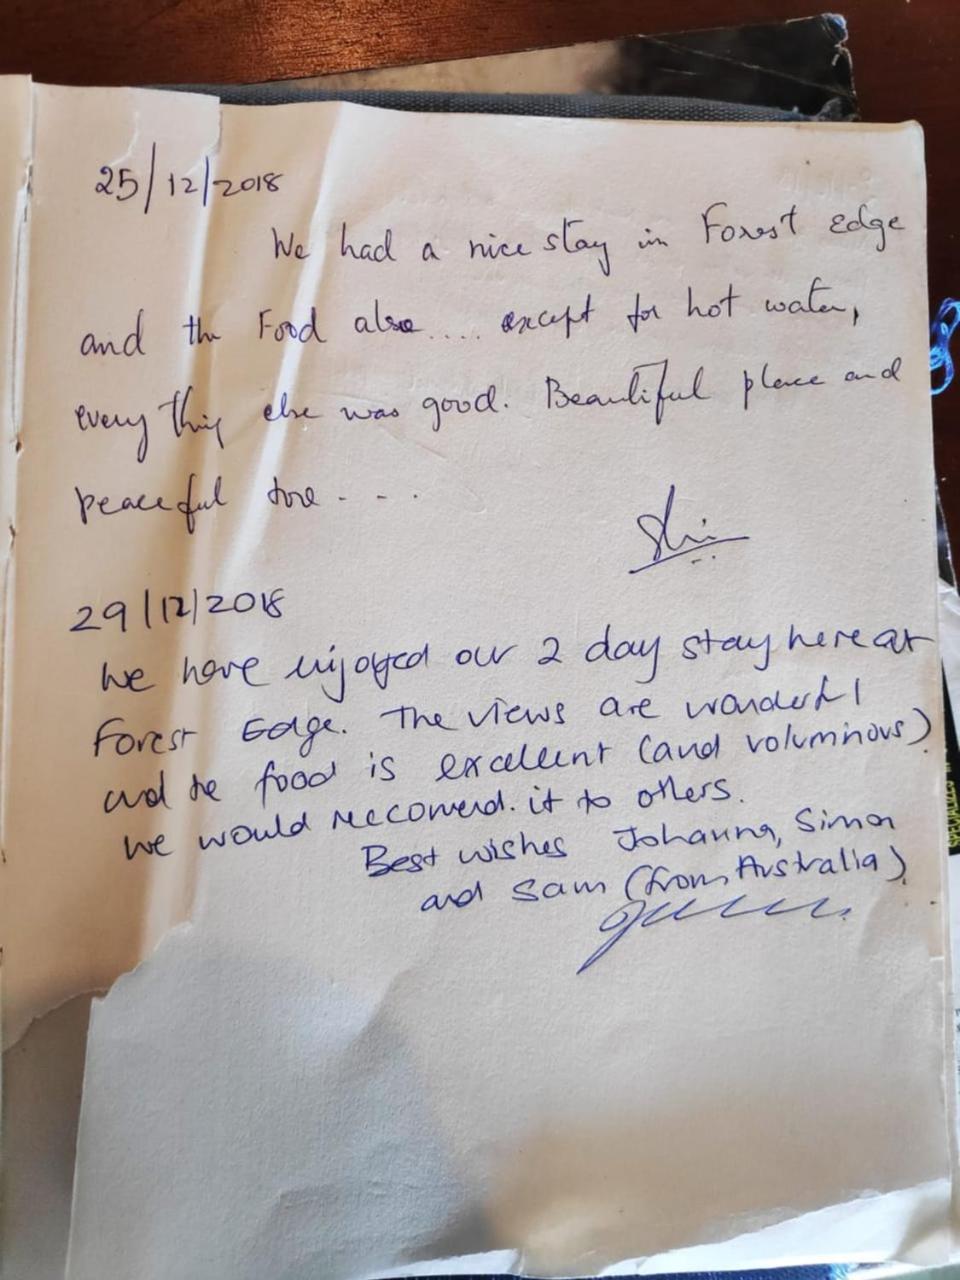 25/12/2018
We had a nice stay in Forest Edge
and the Food also.... except for hot water,
every thing else was good. Beautiful place and
peaceful too - - - .
29/12/2018
We have enjoyed our 2 day stay here at
Forest Edge. The views are wonderful
and the food is excellent (and voluminous).
We would recommend. it to others.
Best wishes Johanna, Simon
and Sam (from Australia).